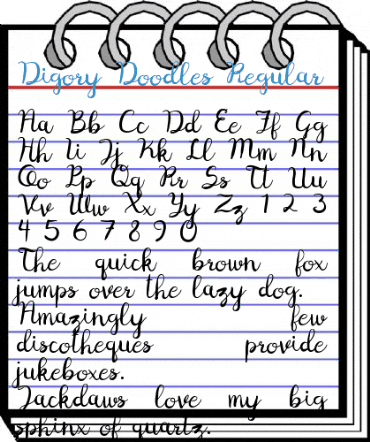 Digory Doodles Regular
Aa Bb Cc Dd Ee Ff Gg
Hh Ii Jj Kk Ll Mm Nn
Oo Pp Qq Rr Ss Tt Uu
Vv Ww Xx Yy Zz 1 2 3
4 5 6 7 8 9 0
The quick brown fox
jumps over the lazy dog.
Amazingly few
discotheques provide
jukeboxes.
Jackdaws love my big
sphinx of quartz.